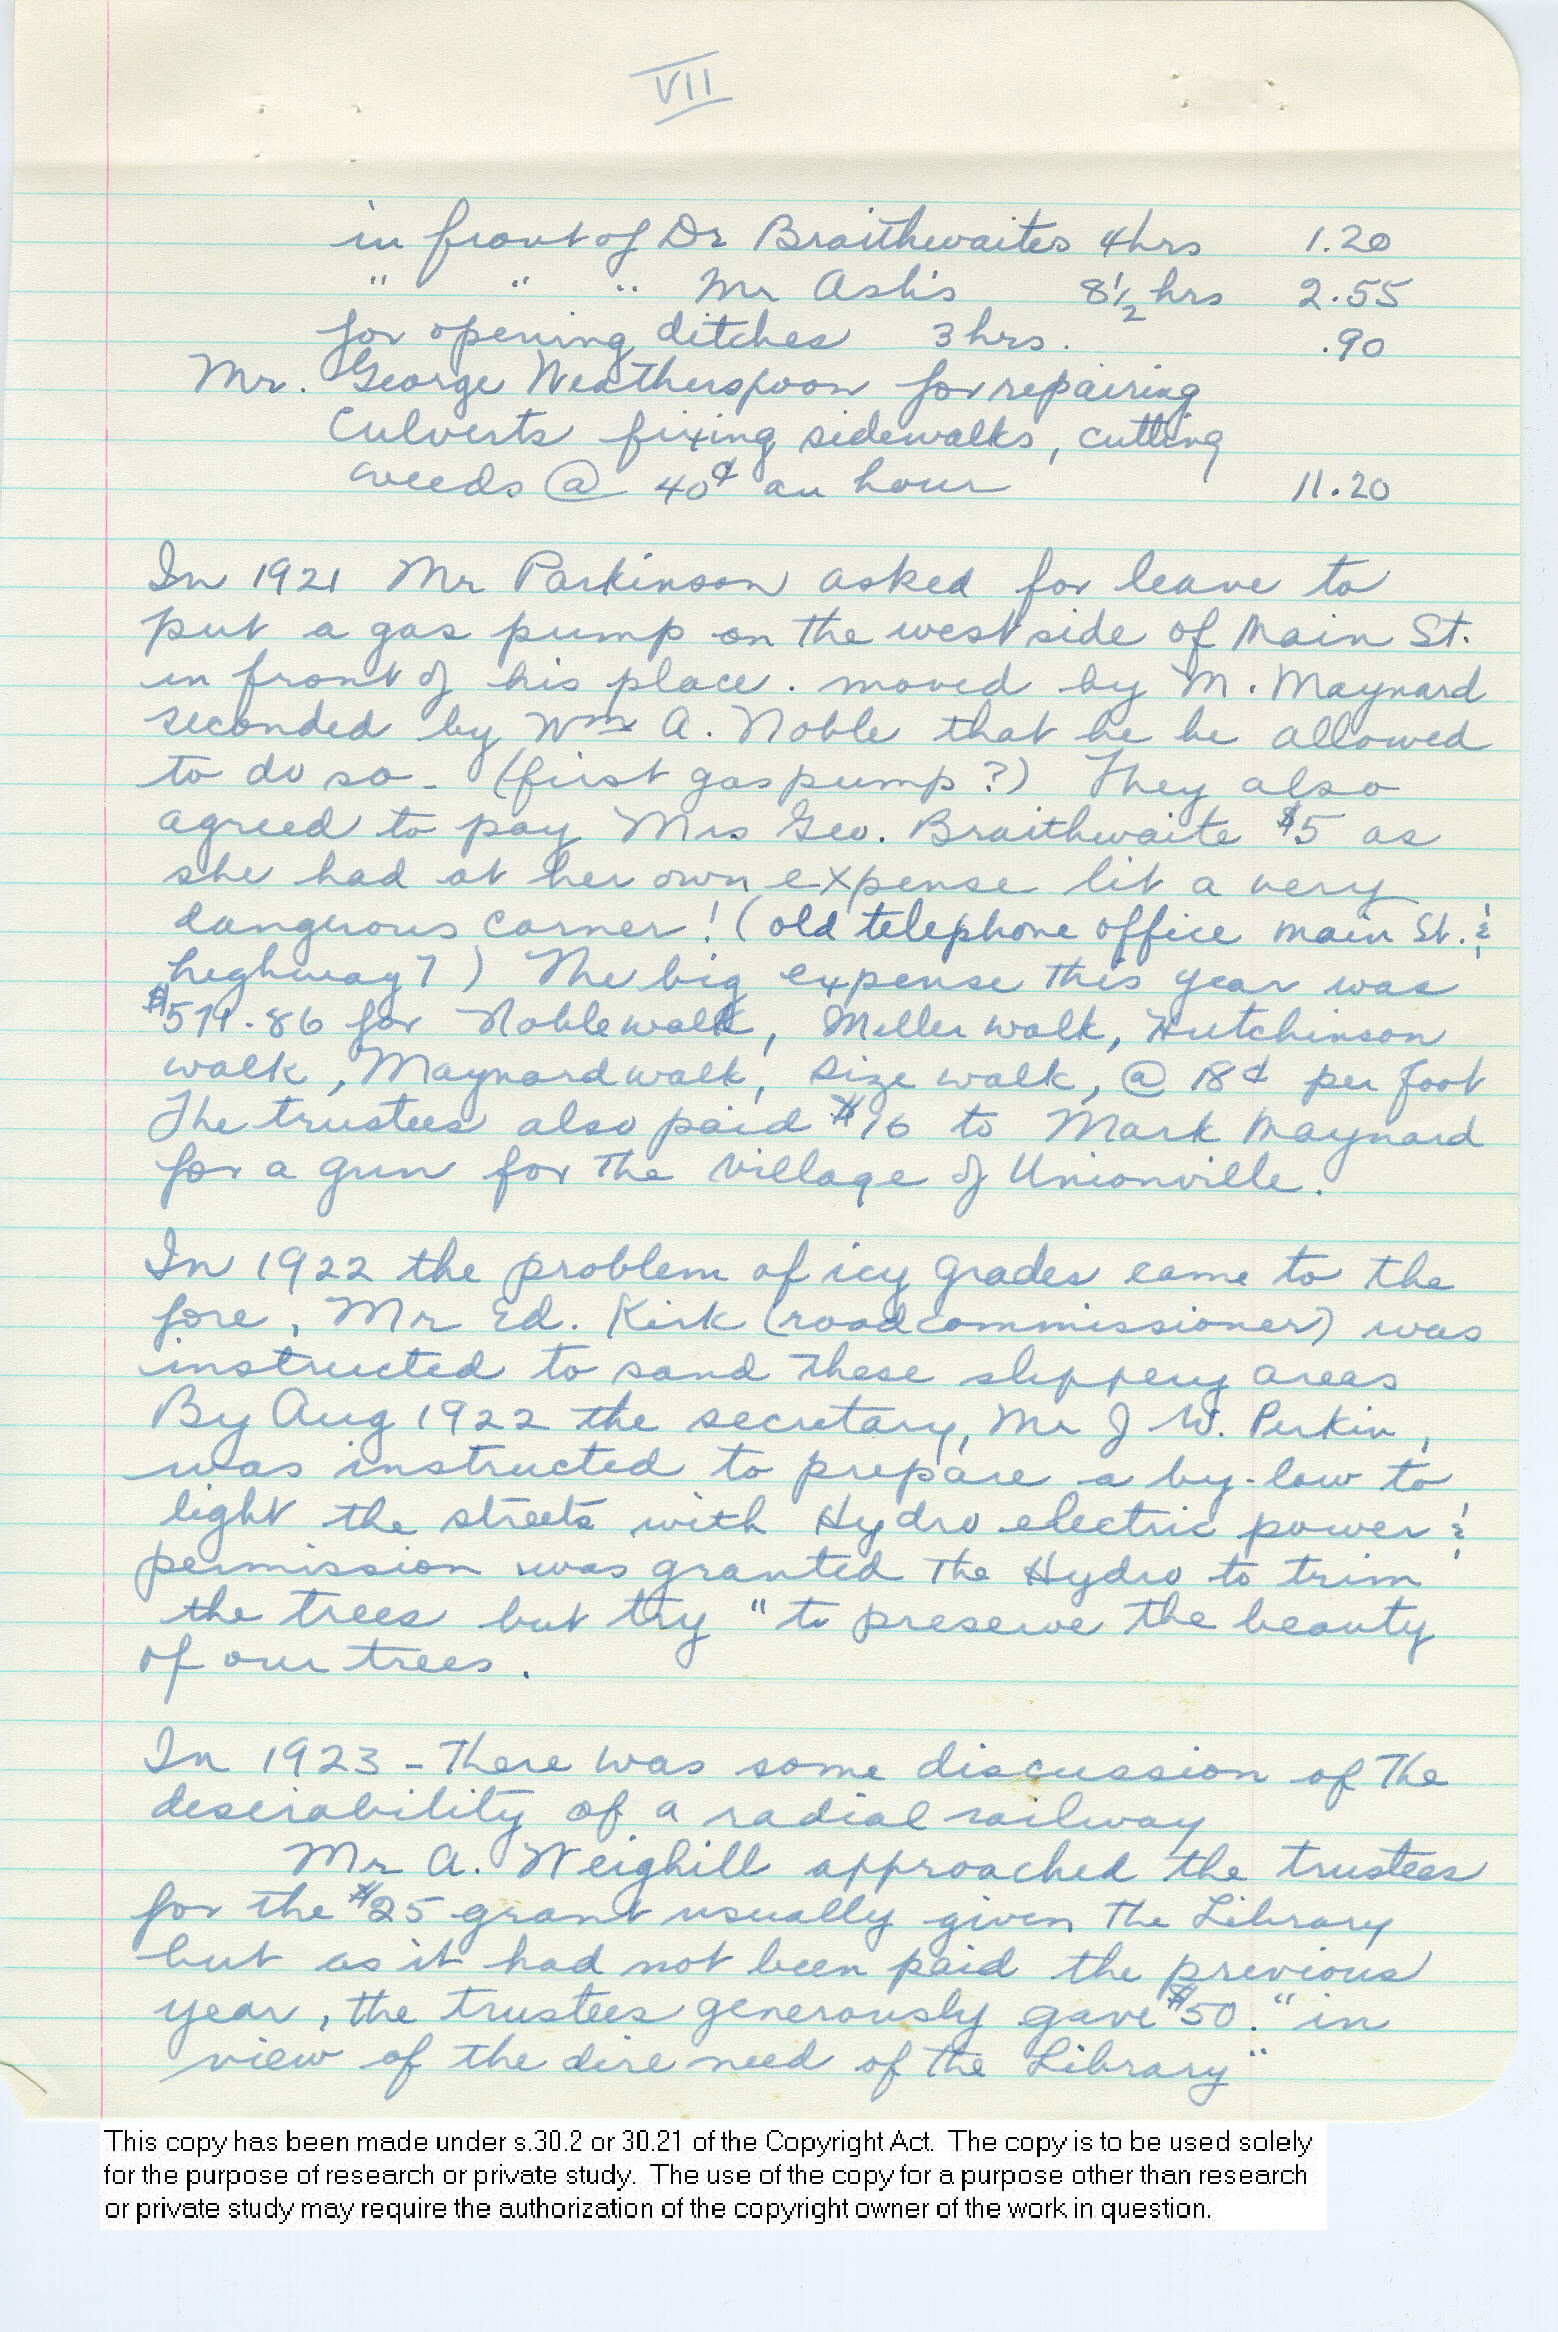 VII
in front of Dr Braithwaites 4hrs 1.20
" " " Mr Ash's 8½ hrs 2.55
for opening ditches 3 hrs. .90
Mr. George Weatherspoon for repairing
Culverts fixing sidewalks, cutting
weeds @ 40¢ an hour 11.20
In 1921 Mr Parkinson asked for leave to
put a gas pump on the west side of Main St.
in front of his place. moved by M. Maynard
seconded by Wm A. Noble that he be allowed
to do so - (first gas pump?) They also
agreed to pay Mrs Geo. Braithwaite $5 as
she had at her own expense lit a very
dangerous corner! (old telephone office main St. &
highway 7) The big expense this year was
for Noble walk, Miller walk, Hutchinson
walk, Maynard walk, size walk, @ 18¢ per foot
The trustees also paid $16 to Mark Maynard
for a gun for the Village of Unionville.
In 1922 the problem of icy grades came to the
fore, Mr Ed. Kirk (road commissioner) was
instructed to sand these slippery areas
By Aug 1922 the secretary, Mr J W. Perkin,
was instructed to prepare a by-law to
light the streets with Hydro electric power &
permission was granted the Hydro to trim
the trees but try "to preserve the beauty
of our trees.
In 1923 - There was some discussion of the
desirability of a radial railway
Mr A. Weighill approached the trustees
for the $25 grant usually given the Library
but as it had not been paid the previous
year, the trustees generously gave $50. "in
view of the dire need of the Library"
This copy has been made under s.30.2 or 30.21 of the Copyright Act. The copy is to be used solely
for the purpose of research or private study. The use of the copy for a purpose other than research
or private study may require the authorization of the copyright owner of the work in question.